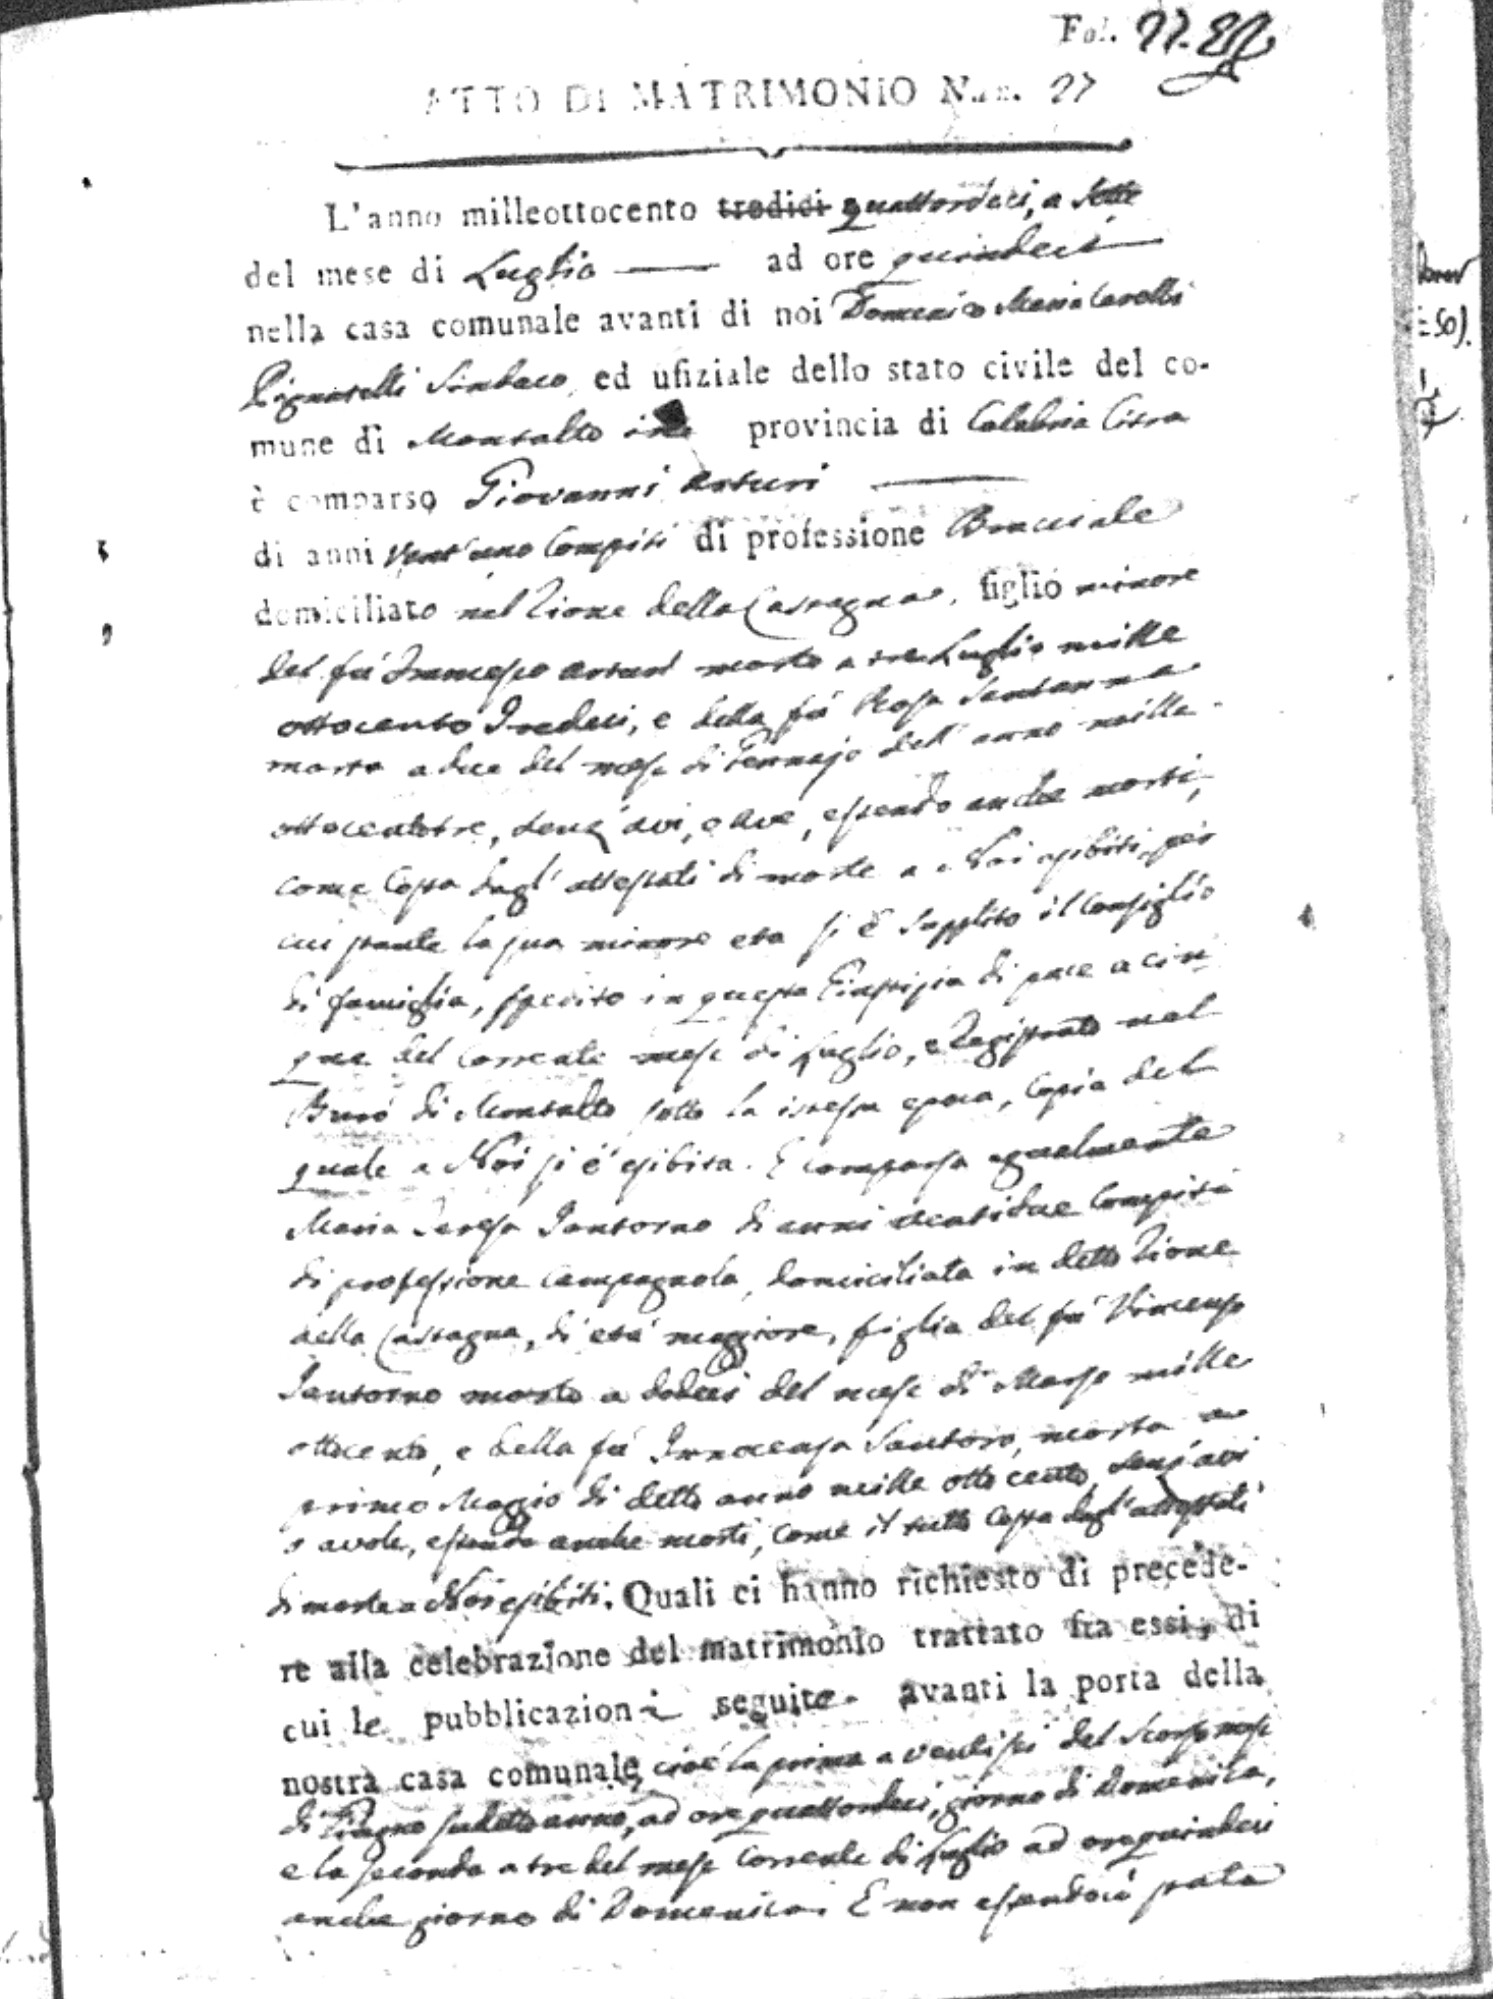 Fol. 27.
ATTO DI MATRIMONIO Num. 27
L'anno milleottocento tredici quattordeci, a Sette
del mese di Luglio ad ore quindeci
nella casa comunale avanti di noi Domenico Maria Carolli
Pignatelli Sindaco, ed ufiziale dello stato civile del co-
mune di Montalto in provincia di Calabria Citra
è comparso Giovanni Arturi
di anni vent'uno Compiti di professione Bracciale
domiciliato nel Rione della Castagna, figlio minore
del fù Francesco Arturi morto a tre Luglio mille
ottocento Tredeci, e della fù Rosa Santanna
morta a due del mese di Gennajo dell'anno mille
ottocentotre, senz'avi, e Ave, essendo anche morti,
come Costa dagl'attestati di morte a Noi esibiti, per
cui stante la sua minore età si è Supplito il Consiglio
di famiglia, spedito in questa Giustizia di pace a cin
que del Corrente mese di Luglio, e Registrato nel
Burò di Montalto sotto la istessa epoca, Copia del
quale a Noi si è esibita. E comparsa egualmente
Maria Teresa Iantorno di anni ventidue Compiti
di professione Campagnola, domiciliata in detto Rione
della Castagna, di età maggiore, figlia del fù Vincenzo
Iantorno morto a dodeci del mese di Marzo mille
ottocento, e della fù Innocenza Santoro, morta a
primo Maggio di detto anno mille ottocento, senz'avi
o avole, essendo anche morti, come il tutto Costa dagl'attestati
di morte a Noi esibiti. Quali ci hanno richiesto di precede-
re alla celebrazione del matrimonio trattato fra essi, di
cui le pubblicazioni seguite avanti la porta della
nostra casa comunale, cioè la prima a ventisei del Scorso mese
di Giugno sudetto anno, ad ore quattordeci, giorno di Domenica,
e la seconda a tre del mese Corrente di Luglio ad ore quindeci
anche giorno di Domenica. E non essendoci stata